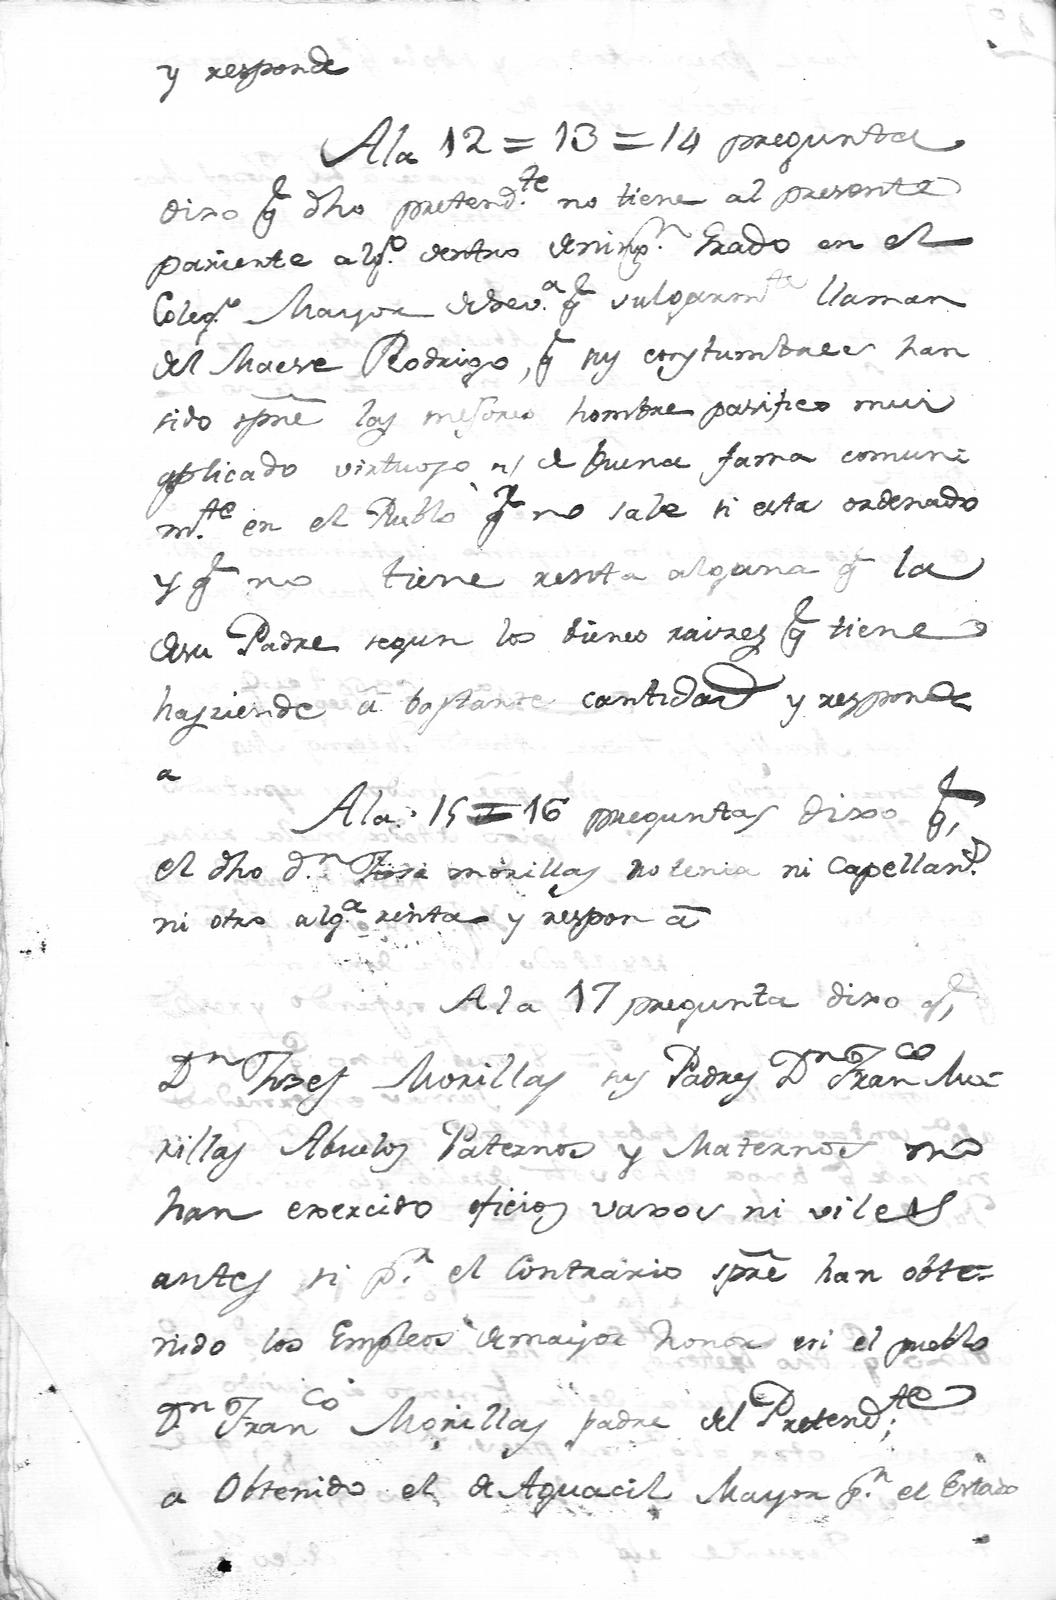 y responde
Ala 12 = 13 = 14 pregunta
dixo q dho pretend.te no tiene al presente
pariente alg.o dentro de ning.n Grado en el
Coleg.o Mayor de Sev.a q vulgarm.te llaman
del Maese Rodrigo, q sus constumbres han
sido spre las mejores hombre pasifico mui
aplicado virtuoso y de buena fama comun
m.te en el Pueblo q no sabe si esta ordenado
y q no tiene renta alguna q la
de su Padre segun los bienes raizes q tiene
hasziende a bastante cantidad y responde
a
Ala 15 = 16 preguntas dixo q,
el dho d.n Jose morillas no tenia ni Capellan.a
ni otro alg.a renta y respon a
A la 17 pregunta dixo q,
Dn Josef Morillas sus Padres Dn Franco Mo=
rillas Abuelos Paternos y Maternos no
han exercido oficios vaxos ni viles
antes si p.r el Contrario spre han obte=
nido los Empleos de mayor honor en el pueblo
Dn Franco Morillas padre del Pretend.te
a Obtenido el de Aguacil Mayor p.r el Estado